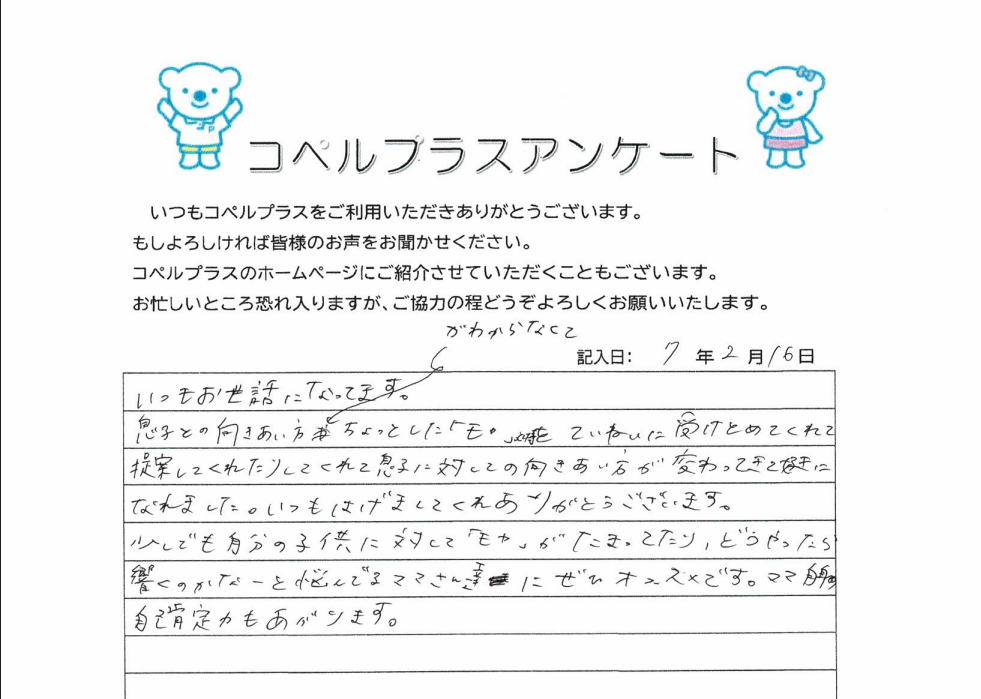 コペルプラスアンケート
いつもコペルプラスをご利用いただきありがとうございます。
もしよろしければ皆様のお声をお聞かせください。
コペルプラスのホームページにご紹介させていただくこともございます。
お忙しいところ恐れ入りますが、ご協力の程どうぞよろしくお願いいたします。
がわからなくて
記入日: 7 年 2 月 16 日
いつもお世話になってます。
息子との向きあい方 ちょっとした「モヤ」 ていねいに受けとめてくれて
提案してくれたりしてくれて息子に対しての向きあい方が変わってきて好きに
なれました。いつもはげましてくれありがとうございます。
少しでも自分の子供に対して「モヤ」がたまってたり、どうやったら
響くのかなーと悩んでるママさん達にぜひオススメです。ママ
自己肯定力もあがります。